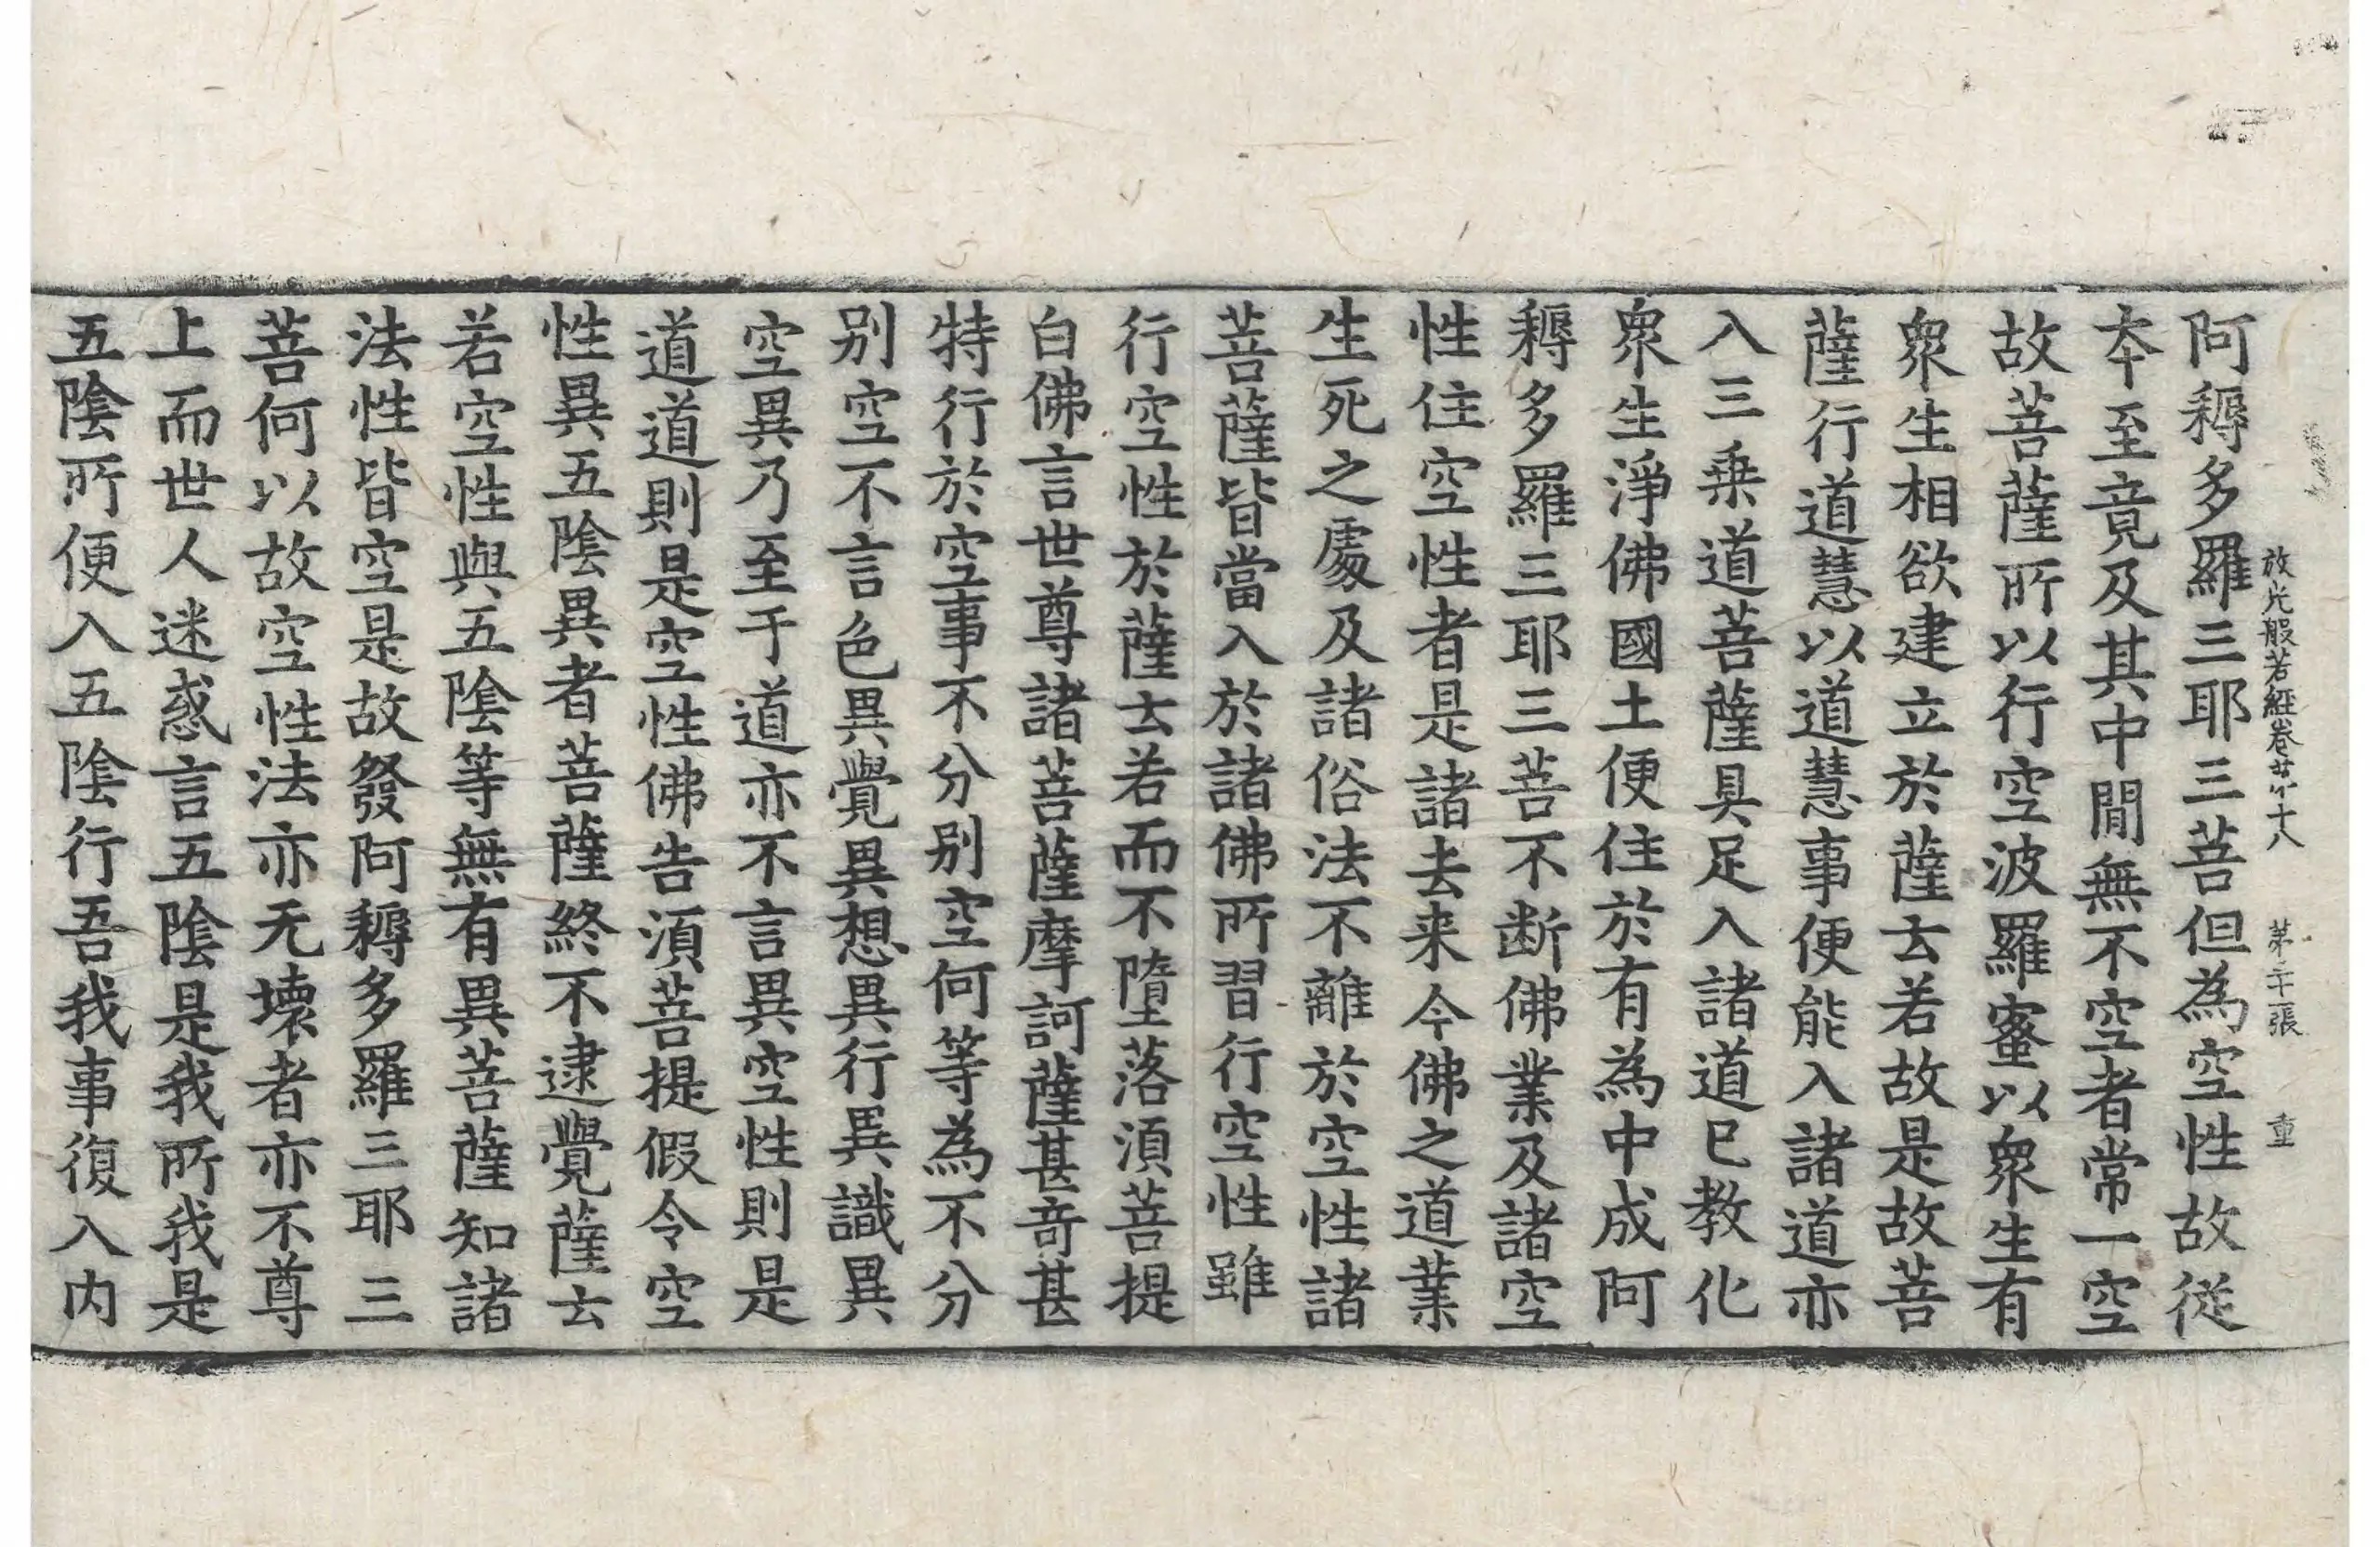 放光般若經卷第十八 第二十張 重
阿耨多羅三耶三菩但為空性故從
夲至竟及其中間無不空者常一空
故菩薩所以行空波羅蜜以衆生有
衆生相欲建立於薩云若故是故菩
薩行道慧以道慧事便能入諸道亦
入三乗道菩薩具足入諸道已教化
衆生淨佛國土便住於有為中成阿
耨多羅三耶三菩不断佛業及諸空
性住空性者是諸去来今佛之道業
生死之處及諸俗法不離於空性諸
菩薩皆當入於諸佛所習行空性雖
行空性於薩云若而不墮落湏菩提
白佛言世尊諸菩薩摩訶薩甚奇甚
特行於空事不分别空何等為不分
别空不言色異覺異想異行異識異
空異乃至于道亦不言異空性則是
道道則是空性佛告湏菩提假令空
性異五隂異者菩薩終不逮覺薩云
若空性與五隂等無有異菩薩知諸
法性皆空是故發阿耨多羅三耶三
菩何以故空性法亦无壞者亦不尊
上而世人迷惑言五隂是我所我是
五隂所便入五隂行吾我事復入内